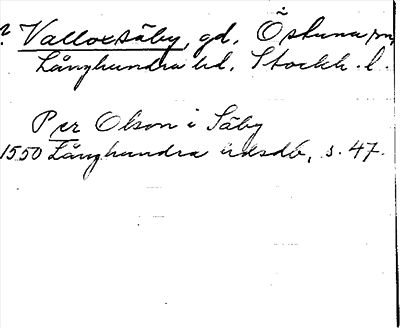 ? Valloxsäby, gd, Östuna sn,
Långhundra hd, Stockh. l.
Per Olson i Säby
1550 Långhundra hdsdb, s. 47.